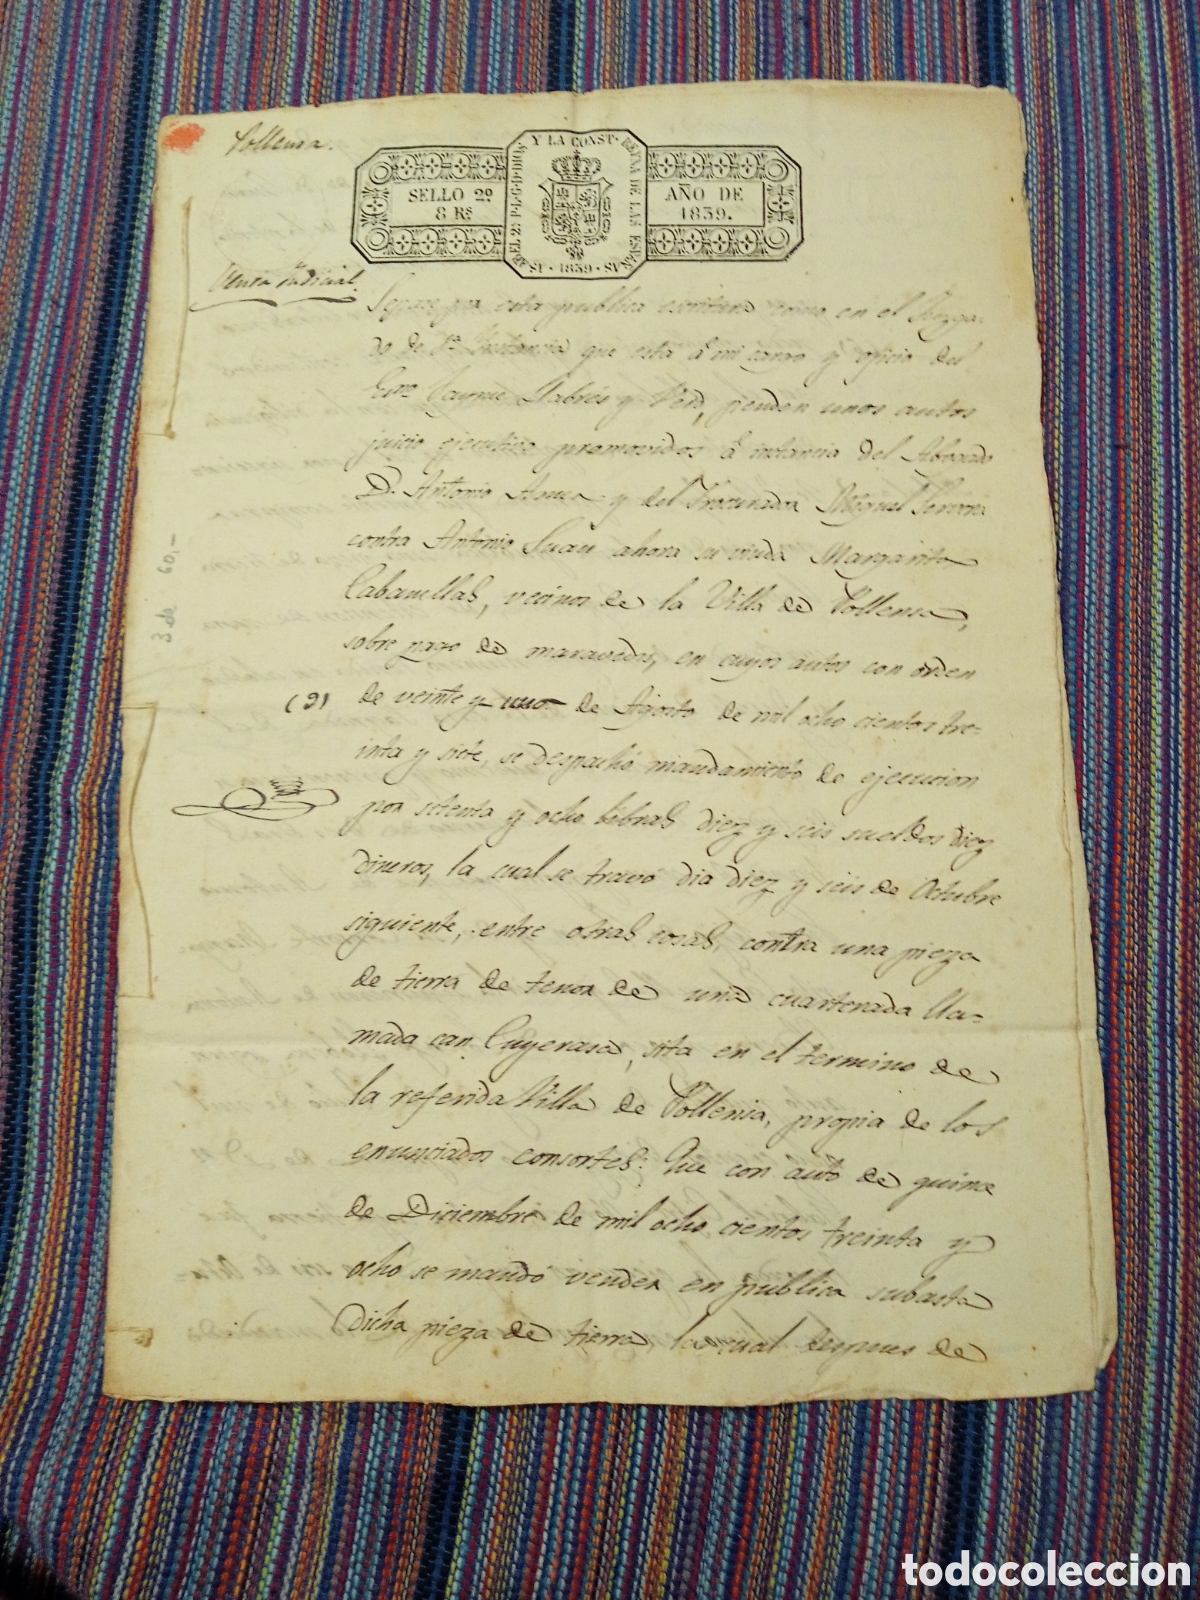 Pollensa.
YSABEL 2ª P.L.G.D DIOS Y LA CONST. REYNA DE LAS ESPAÑAS · 1839 ·
SELLO 2º
8 Rs
AÑO DE
1839.
Venta Judicial.
Sepase por esta publica escritura como en el Juzga-
do de 1ª Instancia que está á mi cargo y oficio del
Esno Jayme Llabrés y Verd, penden unos autos
juicio ejecutivo promovidos á instancia del Abogado
D. Antonio y del Procurador Miguel Servera
contra Antonio Suau ahora su viuda Margarita
Cabanellas, vecinos de la Villa de Pollensa,
sobre pago de maravedis, en cuyos autos con orden
(9) de veinte y uno de Agosto de mil ocho cientos tre-
inta y siete, se despachó mandamiento de ejecucion
por setenta y ocho libras diez y seis sueldos diez
dineros, la cual se travó dia diez y seis de Octubre
siguiente, entre otras cosas, contra una pieza
de tierra de tenor de una cuartenada lla-
mada can Cuyerasa, sita en el termino de
la referida Villa de Pollensa, propia de los
enunciados consortes: Que con auto de quince
de Diciembre de mil ocho cientos treinta y
ocho se mandó vender en publica subasta
dicha pieza de tierra, la cual despues de
3 de 60,-
todocoleccion